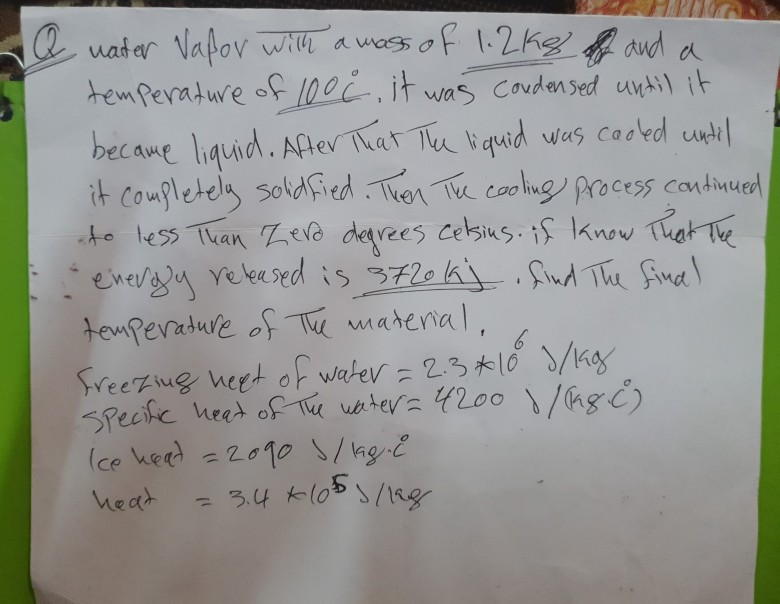 Q water Vapor with a mass of 1.2 Kg and a
temperature of 100 c°, it was condensed until it
became liquid. After That The liquid was cooled until
it completely solidfied. Then The cooling process continued
to less Than Zero degrees celsius. if know That The
energy released is 3720 kj . find The final
temperature of The material.
freezing heat of water = 2.3 *10^6 J/kg
specific heat of The water = 4200 J/(kg.c°)
Ice heat = 2090 J/kg.c°
heat = 3.4 *10^5 J/kg